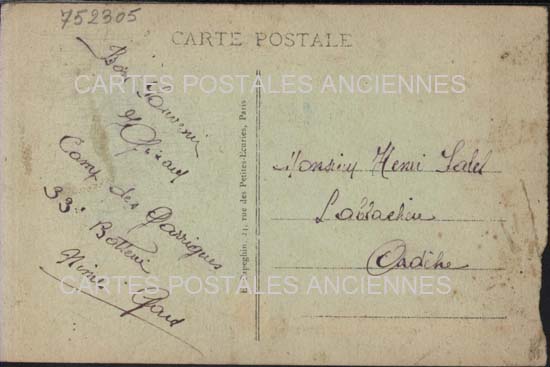 752305
CARTE POSTALE
CARTES POSTALES ANCIENNES
Bon Souvenir
Camp des Garrigues
33e Batterie
Nîmes Gard
E. Papeghin, 23, rue des Petites-Ecuries, Paris
Monsieur Henri
Ardèche
CARTES POSTALES ANCIENNES